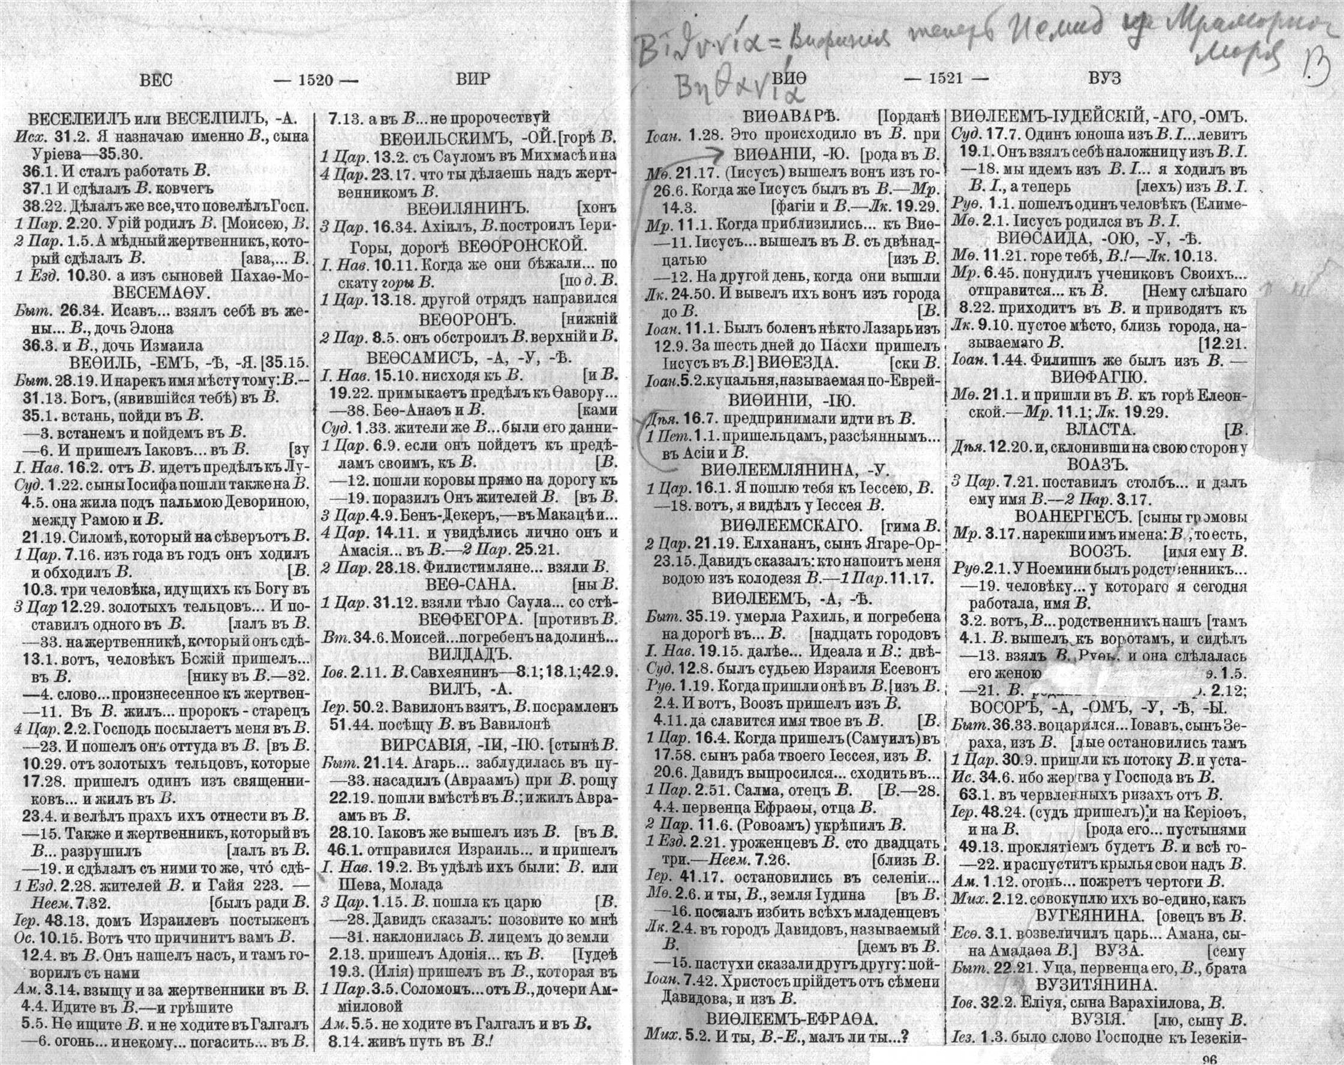 Βιθυνία = Вифиния теперь Исмид на Мраморном
моря
Βηθανία
В
ВЕС — 1520 — ВИР
ВЕСЕЛЕИЛЪ или ВЕСЕЛІИЛЪ, -А.
Исх. 31.2. Я назначаю именно В., сына
Уріева—35.30.
36.1. И сталъ работать В.
37.1 И сдѣлалъ В. ковчегъ
38.22. Дѣлалъ же все, что повелѣлъ Госп.
1 Пар. 2.20. Урій родилъ В. [Моисею, В.
2 Пар. 1.5. А мѣдный жертвенникъ, кото-
рый сдѣлалъ В. [ава,... В.
1 Езд. 10.30. а изъ сыновей Пахаѳ-Мо-
ВЕСЕМАѲУ.
Быт. 26.34. Исавъ... взялъ себѣ въ же-
ны... В., дочь Элона
36.3. и В., дочь Измаила
ВЕѲИЛЬ, -ЕМЪ, -Ѣ, -Я. [35.15.
Быт. 28.19. И нарекъ имя мѣсту тому: В.—
31.13. Богъ, (явившійся тебѣ) въ В.
35.1. встань, пойди въ В.
—3. встанемъ и пойдемъ въ В.
—6. И пришелъ Іаковъ... въ В. [зу
І. Нав. 16.2. отъ В. идетъ предѣлъ къ Лу-
Суд. 1.22. сыны Іосифа пошли также на В.
4.5. она жила подъ пальмою Девориною,
между Рамою и В.
21.19. Силомѣ, который на сѣверъ отъ В.
1 Цар. 7.16. изъ года въ годъ онъ ходилъ
и обходилъ В. [В.
10.3. три человѣка, идущихъ къ Богу въ
3 Цар 12.29. золотыхъ тельцовъ... И по-
ставилъ одного въ В. [лалъ въ В.
—33. на жертвенникѣ, который онъ сдѣ-
13.1. вотъ, человѣкъ Божій пришелъ...
въ В. [нику въ В.—32.
—4. слово... произнесенное къ жертвен-
—11. Въ В. жилъ... пророкъ - старецъ
4 Цар. 2.2. Господь посылаетъ меня въ В.
—23. И пошелъ онъ оттуда въ В. [въ В.
10.29. отъ золотыхъ тельцовъ, которые
17.28. пришелъ одинъ изъ священни-
ковъ... и жилъ въ В.
23.4. и велѣлъ прахъ ихъ отнести въ В.
—15. Также и жертвенникъ, который въ
В... разрушилъ [лалъ въ В.
—19. и сдѣлалъ съ ними то же, что́ сдѣ-
1 Езд. 2.28. жителей В. и Гайя 223. —
Неем. 7.32. [былъ ради В.
Іер. 48.13. домъ Израилевъ постыженъ
Ос. 10.15. Вотъ что причинитъ вамъ В.
12.4. въ В. Онъ нашелъ насъ, и тамъ го-
ворилъ съ нами
Ам. 3.14. взыщу и за жертвенники въ В.
4.4. Идите въ В.—и грѣшите
5.5. Не ищите В. и не ходите въ Галгалъ
—6. огонь... и некому... погасить... въ В.
7.13. а въ В... не пророчествуй
ВЕѲИЛЬСКИМЪ, -ОЙ. [горѣ В.
1 Цар. 13.2. съ Сауломъ въ Михмасѣ и на
4 Цар. 23.17. что ты дѣлаешь надъ жерт-
венникомъ В.
ВЕѲИЛЯНИНЪ. [хонъ
3 Цар. 16.34. Ахіилъ, В. построилъ Іери-
Горы, дорогѣ ВЕѲОРОНСКОЙ.
І. Нав. 10.11. Когда же они бѣжали... по
скату горы В. [по д. В.
1 Цар. 13.18. другой отрядъ направился
ВЕѲОРОНЪ. [нижній
2 Пар. 8.5. онъ обстроилъ В. верхній и В.
ВЕѲСАМИСЪ, -А, -У, -Ѣ.
І. Нав. 15.10. нисходя къ В. [и В.
19.22. примыкаетъ предѣлъ къ Ѳавору...
—38. Беѳ-Анаѳъ и В. [ками
Суд. 1.33. жители же В... были его данни-
1 Цар. 6.9. если онъ пойдетъ къ предѣ-
ламъ своимъ, къ В. [В.
—12. пошли коровы прямо на дорогу къ
—19. поразилъ Онъ жителей В. [въ В.
3 Цар. 4.9. Бенъ-Декеръ,—въ Макацѣ и...
4 Цар. 14.11. и увидѣлись лично онъ и
Амасія... въ В.—2 Пар. 25.21.
2 Пар. 28.18. Филистимляне... взяли В.
ВЕѲ-САНА. [ны В.
1 Цар. 31.12. взяли тѣло Саула... со стѣ-
ВЕѲФЕГОРА. [противъ В.
Вт. 34.6. Моисей... погребенъ на долинѣ...
ВИЛДАДЪ.
Іов. 2.11. В. Савхеянинъ—8.1; 18.1; 42.9.
ВИЛЪ, -А.
Іер. 50.2. Вавилонъ взятъ, В. посрамленъ
51.44. посѣщу В. въ Вавилонѣ
ВИРСАВІЯ, -ІИ, -ІЮ. [стынѣ В.
Быт. 21.14. Агарь... заблудилась въ пу-
—33. насадилъ (Авраамъ) при В. рощу
22.19. пошли вмѣстѣ въ В.; и жилъ Авра-
амъ въ В.
28.10. Іаковъ же вышелъ изъ В. [въ В.
46.1. отправился Израиль... и пришелъ
І. Нав. 19.2. Въ удѣлѣ ихъ были: В. или
Шева, Молада
3 Цар. 1.15. В. пошла къ царю [В.
—28. Давидъ сказалъ: позовите ко мнѣ
—31. наклонилась В. лицемъ до земли
2.13. пришелъ Адонія... къ В. [Іудеѣ
19.3. (Илія) пришелъ въ В., которая въ
1 Пар. 3.5. Соломонъ... отъ В., дочери Ам-
міиловой
Ам. 5.5. не ходите въ Галгалъ и въ В.
8.14. живъ путь въ В.!
ВИѲ — 1521 — ВУЗ
ВИѲАВАРѢ. [Іорданѣ
Іоан. 1.28. Это происходило въ В. при
ВИѲАНІИ, -Ю. [рода въ В.
Мѳ. 21.17. (Іисусъ) вышелъ вонъ изъ го-
26.6. Когда же Іисусъ былъ въ В.—Мр.
14.3. [фагіи и В.—Лк. 19.29.
Мр. 11.1. Когда приблизились... къ Виѳ-
—11. Іисусъ... вышелъ въ В. съ двѣнад-
цатью [изъ В.
—12. На другой день, когда они вышли
Лк. 24.50. И вывелъ ихъ вонъ изъ города
до В. [В.
Іоан. 11.1. Былъ боленъ нѣкто Лазарь изъ
12.9. За шесть дней до Пасхи пришелъ
Іисусъ въ В.] ВИѲЕЗДА. [ски В.
Іоан. 5.2. купальня, называемая по-Еврей-
ВИѲИНІИ, -ІЮ.
Дѣя. 16.7. предпринимали идти въ В.
1 Пет. 1.1. пришельцамъ, разсѣяннымъ...
въ Асіи и В.
ВИѲЛЕЕМЛЯНИНА, -У.
1 Цар. 16.1. Я пошлю тебя къ Іессею, В.
—18. вотъ, я видѣлъ у Іессея В.
ВИѲЛЕЕМСКАГО. [гима В.
2 Цар. 21.19. Елхананъ, сынъ Ягаре-Ор-
23.15. Давидъ сказалъ: кто напоитъ меня
водою изъ колодезя В.—1 Пар. 11.17.
ВИѲЛЕЕМЪ, -А, -Ѣ.
Быт. 35.19. умерла Рахиль, и погребена
на дорогѣ въ... В. [надцать городовъ
І. Нав. 19.15. далѣе... Идеала и В.: двѣ-
Суд. 12.8. былъ судьею Израиля Есевонъ
Руѳ. 1.19. Когда пришли онѣ въ В. [изъ В.
2.4. И вотъ, Воозъ пришелъ изъ В.
4.11. да славится имя твое въ В. [В.
1 Цар. 16.4. Когда пришелъ (Самуилъ) въ
17.58. сынъ раба твоего Іессея, изъ В.
20.6. Давидъ выпросился... сходить въ...
1 Пар. 2.51. Салма, отецъ В. [В.—28.
4.4. первенца Ефраѳы, отца В.
2 Пар. 11.6. (Ровоамъ) укрѣпилъ В.
1 Езд. 2.21. уроженцевъ В. сто двадцать
три.—Неем. 7.26. [близь В.
Іер. 41.17. остановились въ селеніи...
Мѳ. 2.6. и ты, В., земля Іудина [въ В.
—16. послалъ избить всѣхъ младенцевъ
Лк. 2.4. въ городъ Давидовъ, называемый
В. [демъ въ В.
—15. пастухи сказали другъ другу: пой-
Іоан. 7.42. Христосъ прійдетъ отъ сѣмени
Давидова, и изъ В.
ВИѲЛЕЕМЪ-ЕФРАѲА.
Мих. 5.2. И ты, В.-Е., малъ ли ты...?
ВИѲЛЕЕМЪ-ІУДЕЙСКІЙ, -АГО, -ОМЪ.
Суд. 17.7. Одинъ юноша изъ В. І... левитъ
19.1. Онъ взялъ себѣ наложницу изъ В. І.
—18. мы идемъ изъ В. І... я ходилъ въ
В. І., а теперь [лехъ) изъ В. І.
Руѳ. 1.1. пошелъ одинъ человѣкъ (Елиме-
Мѳ. 2.1. Іисусъ родился въ В. І.
ВИѲСАИДА, -ОЮ, -У, -Ѣ.
Мѳ. 11.21. горе тебѣ, В.!—Лк. 10.13.
Мр. 6.45. понудилъ учениковъ Своихъ...
отправиться... къ В. [Нему слѣпаго
8.22. приходитъ въ В. и приводятъ къ
Лк. 9.10. пустое мѣсто, близь города, на-
зываемаго В. [12.21.
Іоан. 1.44. Филиппъ же былъ изъ В. —
ВИѲФАГІЮ.
Мѳ. 21.1. и пришли въ В. къ горѣ Елеон-
ской.—Мр. 11.1; Лк. 19.29.
ВЛАСТА. [В.
Дѣя. 12.20. и, склонивши на свою сторону
ВОАЗЪ.
3 Цар. 7.21. поставилъ столбъ... и далъ
ему имя В.—2 Пар. 3.17.
ВОАНЕРГЕСЪ. [сыны громовы
Мр. 3.17. нарекши имъ имена: В., то есть,
ВООЗЪ. [имя ему В.
Руѳ. 2.1. У Ноемини былъ родственникъ...
—19. человѣку... у котораго я сегодня
работала, имя В.
3.2. вотъ, В... родственникъ нашъ [тамъ
4.1. В. вышелъ къ воротамъ, и сидѣлъ
—13. взялъ В. Руѳь, и она сдѣлалась
его женою 1.5.
—21. В. 2.12;
ВОСОРѢ, -А, -ОМЪ, -У, -Ѣ, -Ы.
Быт. 36.33. воцарился... Іовавъ, сынъ Зе-
раха, изъ В. [лые остановились тамъ
1 Цар. 30.9. пришли къ потоку В. и уста-
Ис. 34.6. ибо жертва у Господа въ В.
63.1. въ червленныхъ ризахъ отъ В.
Іер. 48.24. (судъ пришелъ) и на Керіоѳъ,
и на В. [рода его... пустынями
49.13. проклятіемъ будетъ В. и всѣ го-
—22. и распуститъ крылья свои надъ В.
Ам. 1.12. огонь... пожретъ чертоги В.
Мих. 2.12. совокуплю ихъ во-едино, какъ
ВУГЕЯНИНА. [овецъ въ В.
Есѳ. 3.1. возвеличилъ царь... Амана, сы-
на Амадаѳа В.] ВУЗА. [сему
Быт. 22.21. Уца, первенца его, В., брата
ВУЗИТЯНИНА.
Іов. 32.2. Еліуя, сына Варахіилова, В.
ВУЗІЯ. [лю, сыну В.
Іез. 1.3. было слово Господне къ Іезекіи-
96